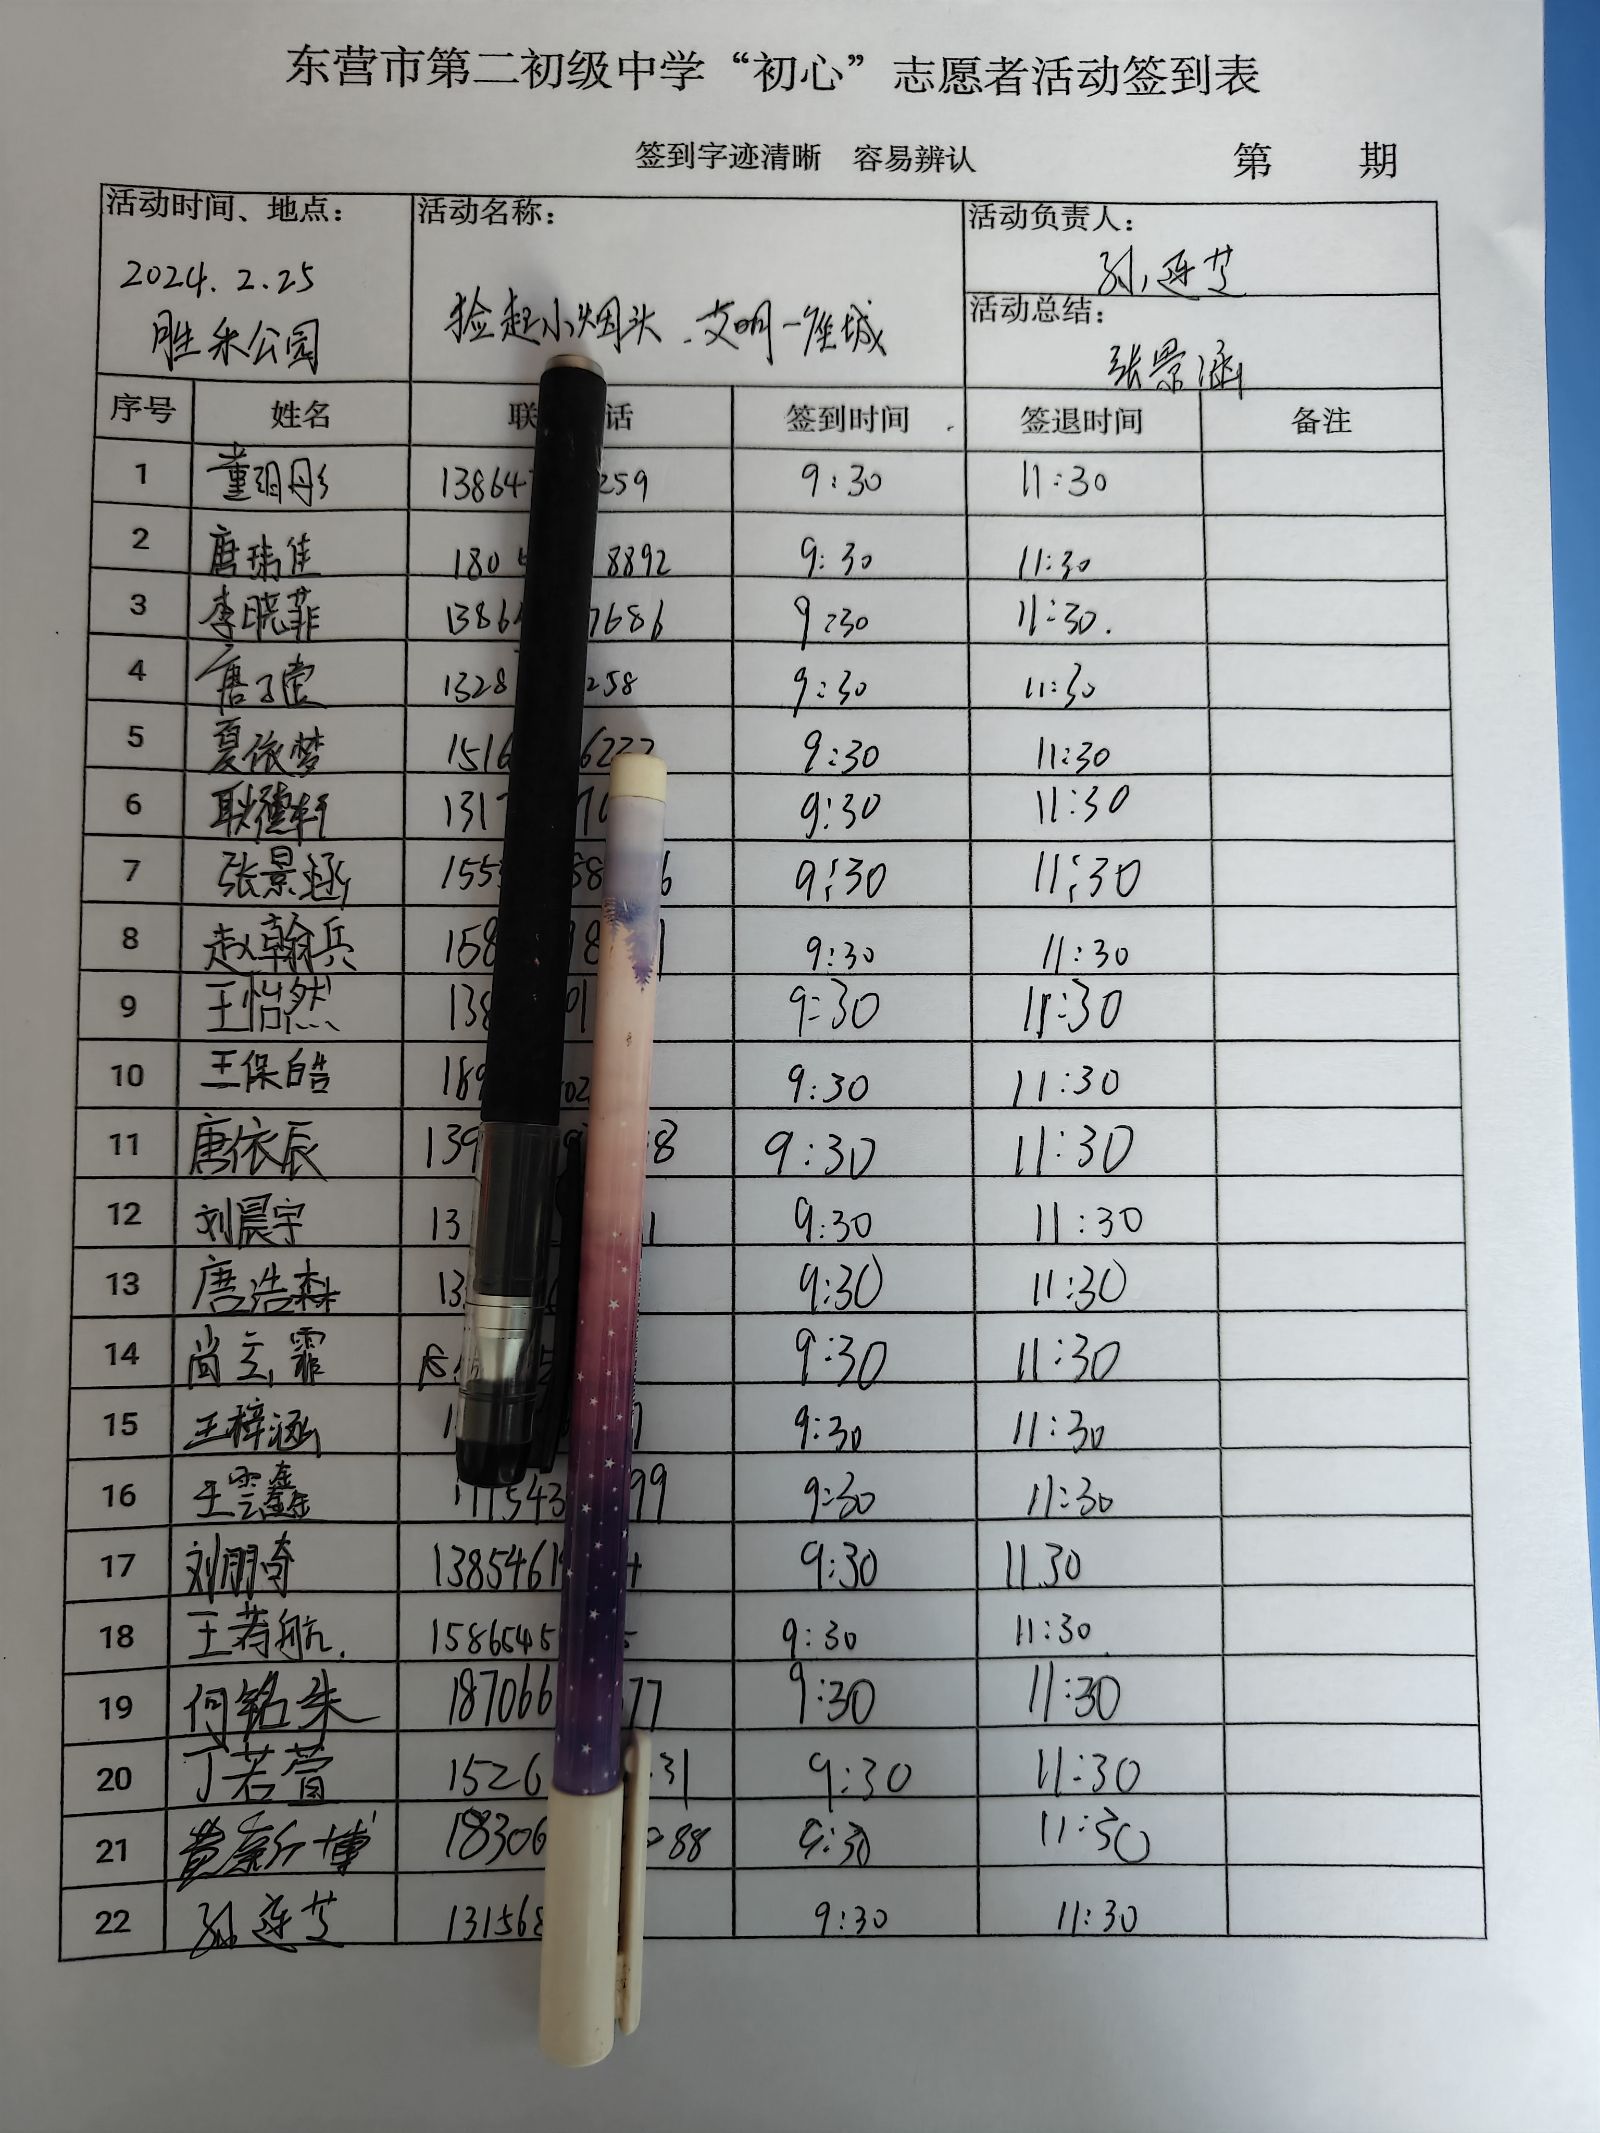 东营市第二初级中学“初心”志愿者活动签到表
签到字迹清晰 容易辨认 第 期
活动时间、地点： 活动名称： 活动负责人：
2024.2.25 孙连芝
胜采公园 捡起小烟头.文明一座城 活动总结：
张景涵
序号 姓名 联 话 签到时间 签退时间 备注
1 董玥彤 13864 259 9:30 11:30
2 唐瑀佳 180 8892 9:30 11:30
3 李晓菲 1386 7686 9:30 11:30.
4 唐子棠 1328 258 9:30 11:30
5 夏依梦 1516 6222 9:30 11:30
6 耿德轩 131 9:30 11:30
7 张景涵 155 6 9:30 11:30
8 赵翰兵 158 9:30 11:30
9 王怡然 138 01 9:30 11:30
10 王保皓 189 02 9:30 11:30
11 唐依辰 139 8 9:30 11:30
12 刘晨宇 13 1 9:30 11:30
13 唐浩森 13 9:30 11:30
14 尚立霏 9:30 11:30
15 王梓涵 1 7 9:30 11:30
16 王雲鑫 1543 99 9:30 11:30
17 刘朋奇 1385461 9:30 11 30
18 王若航. 1586545 9:30 11:30
19 何铭朱 187066 77 9:30 11:30
20 丁若萱 1526 31 9:30 11:30
21 黄 博 18306 88 9:30 11:30
22 孙连芝 13156 9:30 11:30